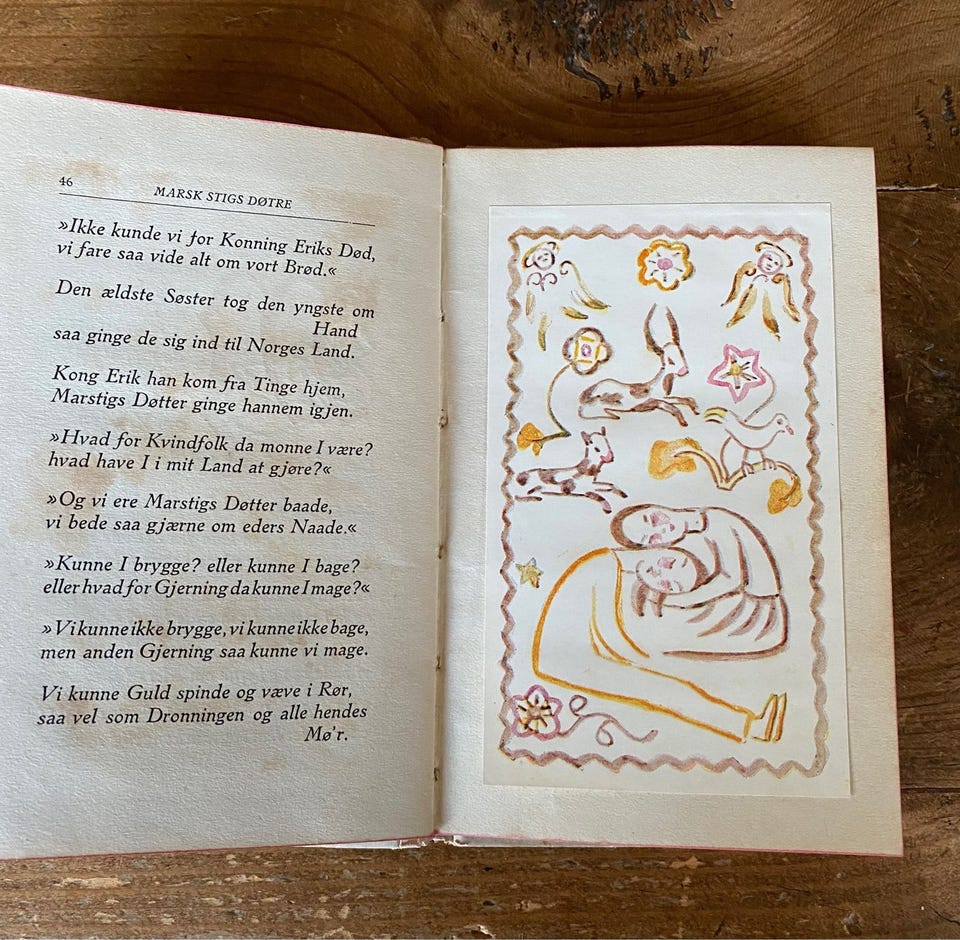 46
MARSK STIGS DØTRE
»Ikke kunde vi for Konning Eriks Død,
vi fare saa vide alt om vort Brød.«
Den ældste Søster tog den yngste om
Hand
saa ginge de sig ind til Norges Land.
Kong Erik han kom fra Tinge hjem,
Marstigs Døtter ginge hannem igjen.
»Hvad for Kvindfolk da monne I være?
hvad have I i mit Land at gjøre?«
»Og vi ere Marstigs Døtter baade,
vi bede saa gjærne om eders Naade.«
»Kunne I brygge? eller kunne I bage?
eller hvad for Gjerning da kunne I mage?«
»Vi kunne ikke brygge, vi kunne ikke bage,
men anden Gjerning saa kunne vi mage.
Vi kunne Guld spinde og væve i Rør,
saa vel som Dronningen og alle hendes
Mø'r.